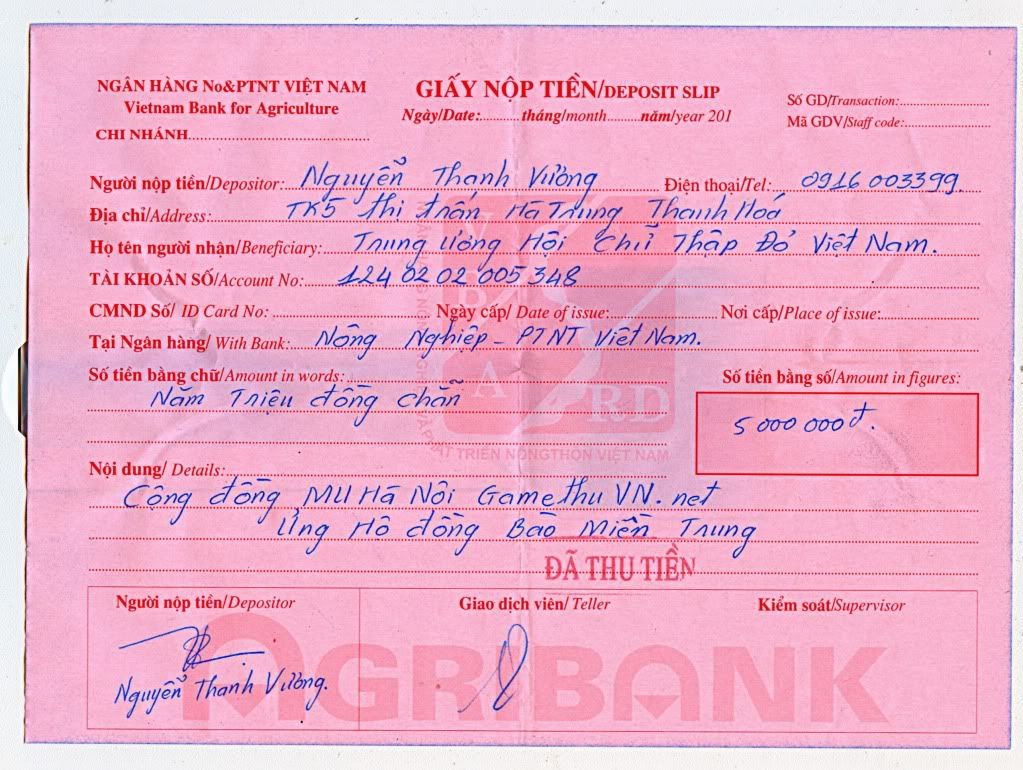 NGÂN HÀNG No&PTNT VIỆT NAM
Vietnam Bank for Agriculture
CHI NHÁNH
GIẤY NỘP TIỀN/DEPOSIT SLIP
Ngày/Date: tháng/month năm/year 201
Số GD/Transaction:
Mã GDV/Staff code:
Người nộp tiền/Depositor: Nguyễn Thanh Vương Điện thoại/Tel: 0916 003399.
Địa chỉ/Address: TK5 thị trấn Hà Trung Thanh Hoá
Họ tên người nhận/Beneficiary: Trung ương Hội Chữ Thập Đỏ Việt Nam.
TÀI KHOẢN SỐ/Account No: 124 02 02 005 348
CMND Số/ ID Card No: Ngày cấp/ Date of issue: Nơi cấp/Place of issue:
Tại Ngân hàng/ With Bank: Nông Nghiệp - PTNT Việt Nam.
Số tiền bằng chữ/Amount in words:
Năm Triệu đồng chẵn
Số tiền bằng số/Amount in figures:
5 000 000đ.
VBARD
PHÁT TRIỂN NÔNG THÔN VIỆT NAM
Nội dung/ Details:
Cộng đồng MU Hà Nội GamethuVN.net
Ủng Hộ đồng Bào Miền Trung
ĐÃ THU TIỀN
Người nộp tiền/Depositor Giao dịch viên/ Teller Kiểm soát/Supervisor
Nguyễn Thanh Vương.
AGRIBANK